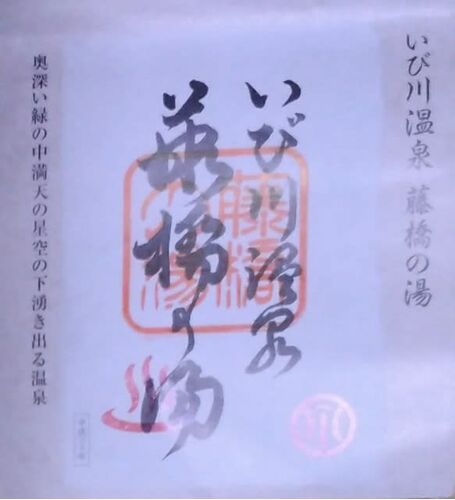 いび川温泉 藤橋の湯
いび川温泉
藤橋の湯
奥深い緑の中満天の星空の下湧き出る温泉
藤橋
の湯